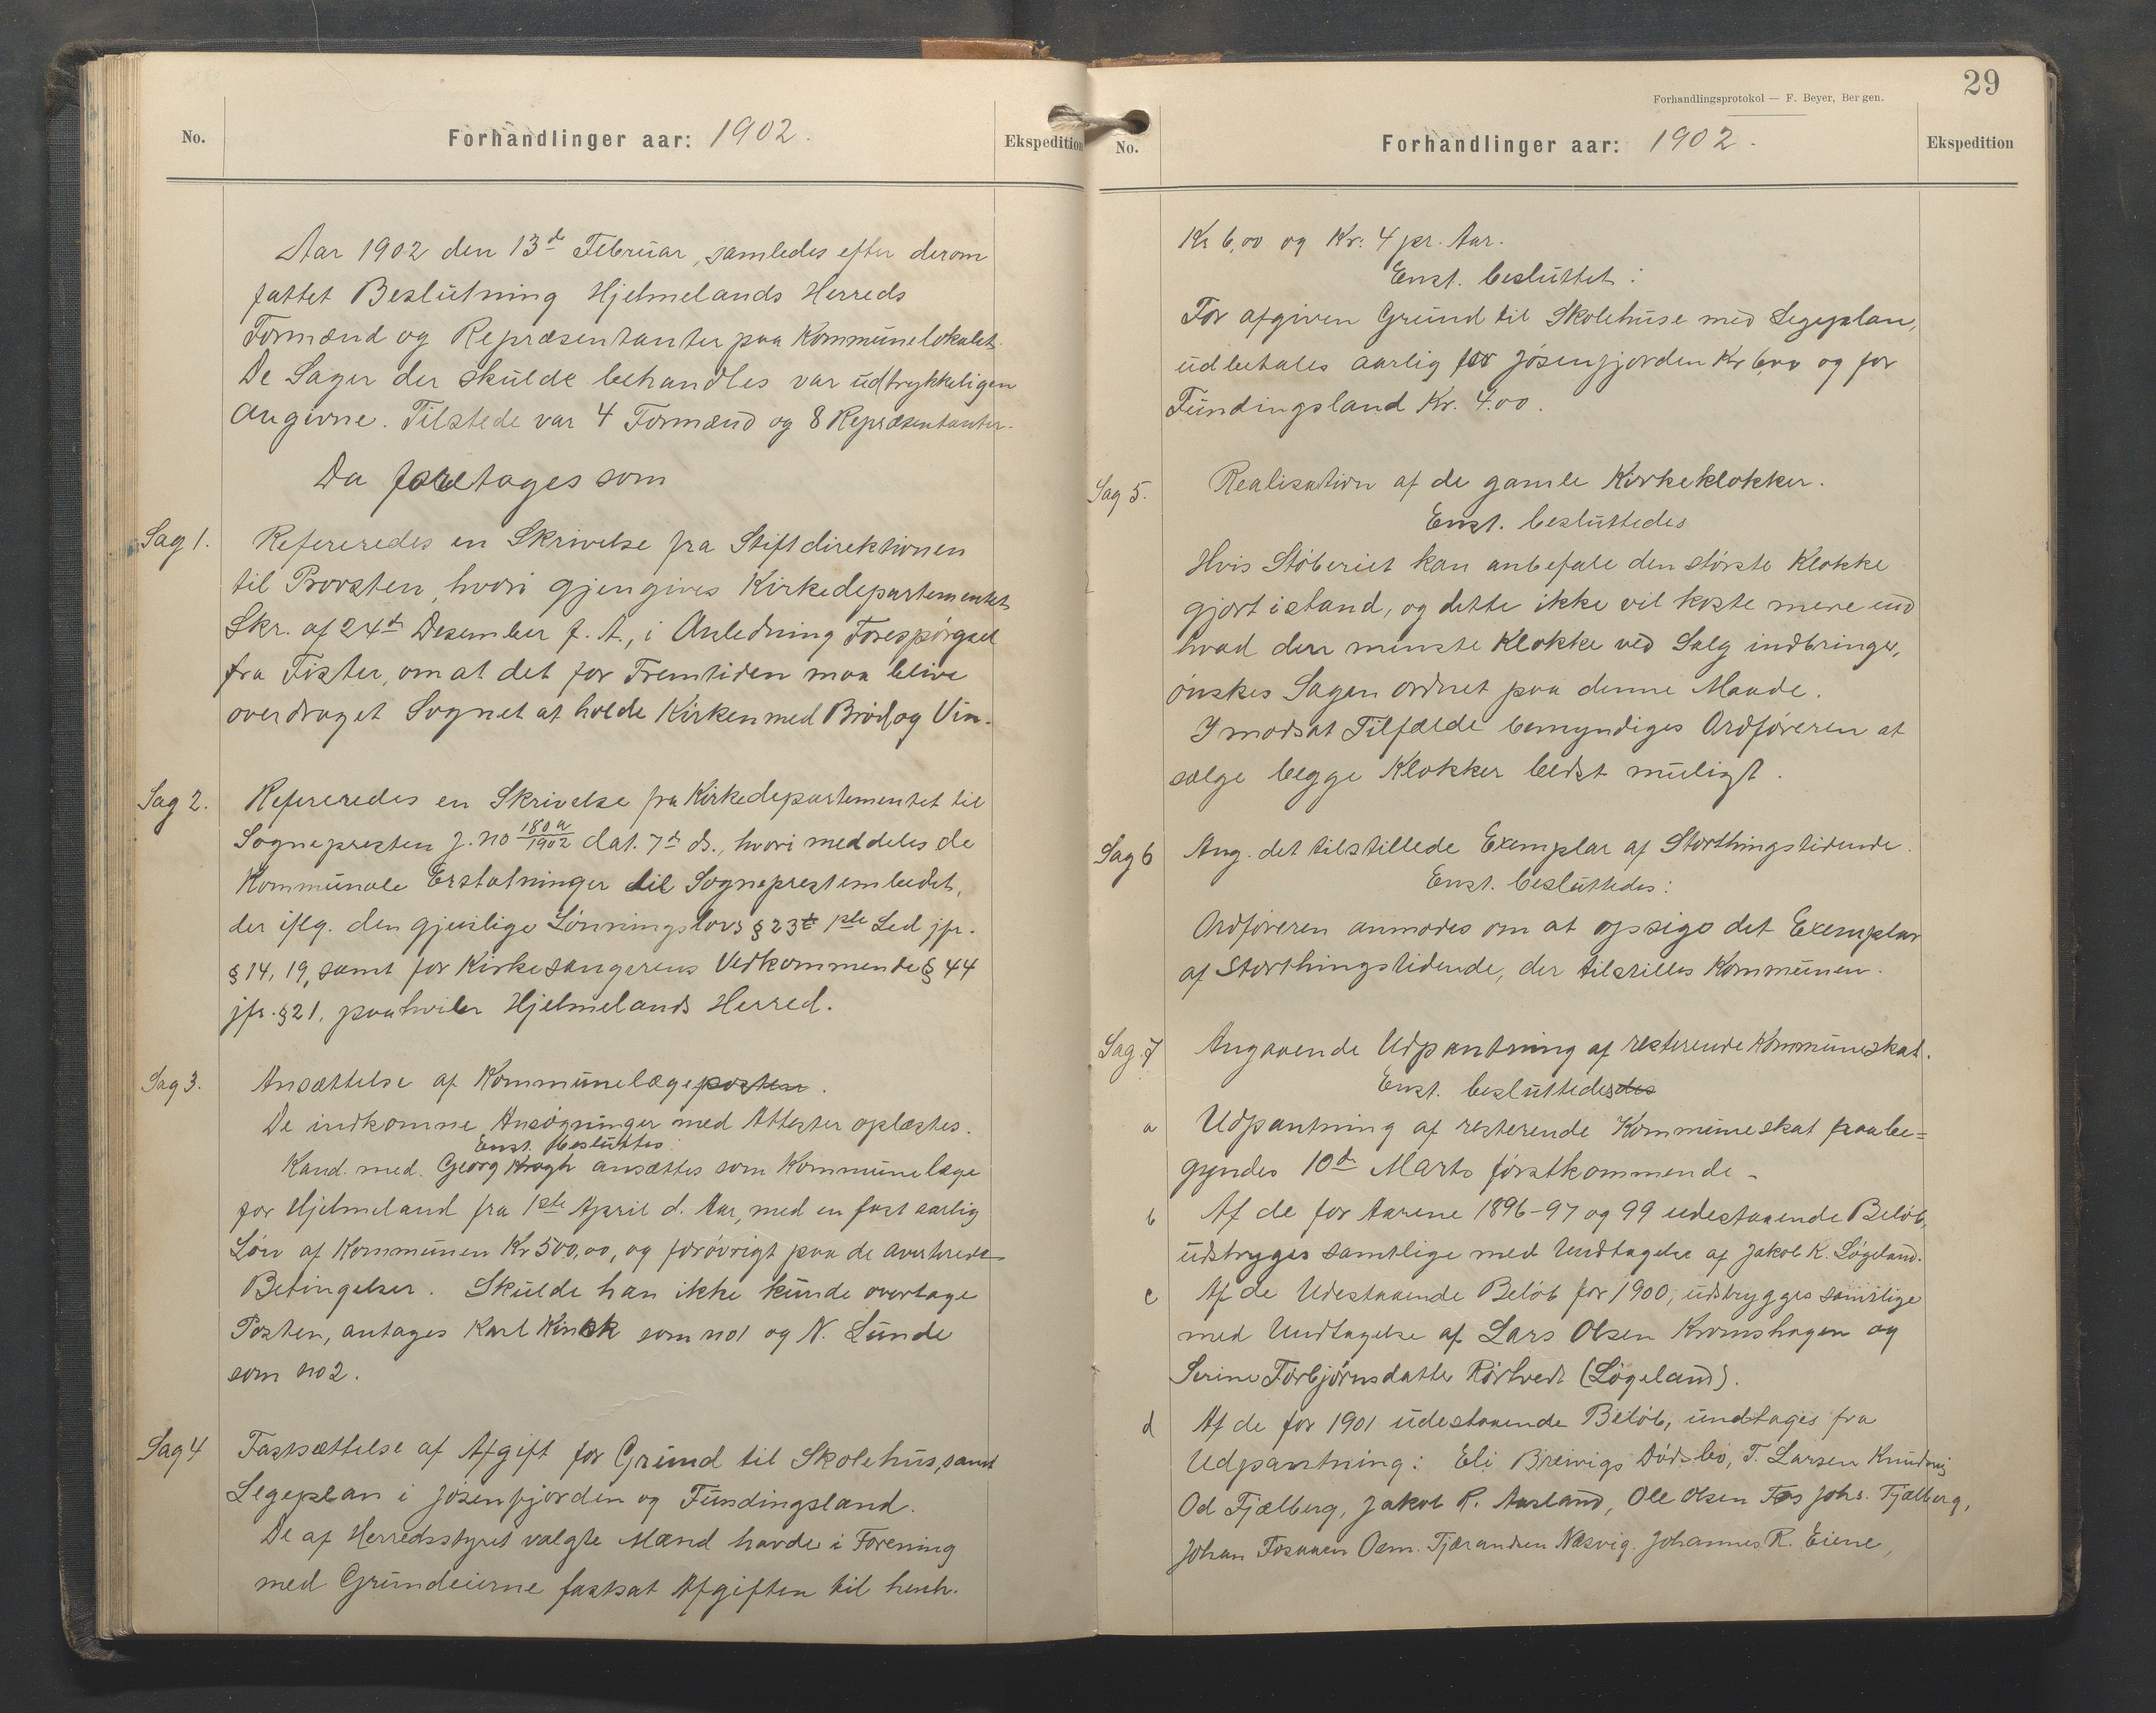 No.
Forhandlinger aar: 1902.
Ekspedition
Aar 1902 den 13de Februar, samledes efter derom
fattet Beslutning Hjelmelands Herreds
Formænd og Repræsentanter paa Kommunelokalet.
De Sager der skulde behandles var udtrykkeligen
Angivne. Tilstede var 4 Formænd og 8 Repræsentanter.
Da foretages som
Sag 1.
Refereredes en Skrivelse fra Stiftdirektionen
til Provsten, hvori gjengives Kirkedepartementets
Skr. af 24de Desember f. A., i Anledning Forespørgsel
fra Fister, om at det for Fremtiden maa blive
overdraget Sognet at holde Kirken med Brød og Vin.
Sag 2.
Refereredes en Skrivelse fra Kirkedepartementet til
Sognepresten J. no 180a/1902 dat. 7de ds., hvori meddeles de
Kommunale Erstatninger til Sogneprestembedet,
der iflg. den gjeistlige Lønningslovs § 23 1ste Led jfr.
§ 14, 19, samt for Kirkesangerens Vedkommende § 44
jfr. § 21. paahviler Hjelmelands Herred.
Sag 3.
Ansættelse af Kommunelægeposten.
De indkomne Ansøgninger med Attester oplæstes.
Enst. Besluttes:
Kand. med. Georg Krogh ansættes som Kommunelæge
for Hjelmeland fra 1ste April d. Aar, med en fast aarlig
Løn af Kommunen Kr 500,00, og forøvrigt paa de averterede
Betingelser. Skulde han ikke kunde overtage
Posten, antages Karl Kinck som no 1 og N. Lunde
som no 2.
Sag 4
Fastsættelse af Afgift for Grund til Skolehus, samt
Legeplan i Jøsenfjorden og Fundingsland.
De af Herredsstyret valgte Mænd havde i Forening
med Grundeierne fastsat Afgiften til henh.
29
Forhandlingsprotokol — F. Beyer, Bergen.
No.
Forhandlinger aar: 1902.
Ekspedition
Kr 6,00 og Kr. 4 pr. Aar.
Enst. besluttet:
For afgiven Grund til Skolehuse med Legeplan,
udbetales aarlig for Jøsenfjorden Kr 6,00 og for
Fundingsland Kr. 4.00.
Sag 5.
Realisation af de gamle Kirkeklokker.
Enst. besluttedes
Hvis Støberiet kan anbefale den største Klokke
gjort istand, og dette ikke vil koste mere end
hvad den minste Klokke ved Salg indbringer,
ønskes Sagen ordnet paa denne Maade.
I modsat Tilfælde bemyndiges Ordføreren at
sælge begge Klokker bedst muligt.
Sag 6
Ang. det tilstillede Exemplar af Storthingstidende.
Enst. besluttedes:
Ordføreren anmodes om at opsige det Exemplar
af Storthingstidende, der tilstilles Kommunen.
Sag. 7
Angaaende Udpantning af resterende Kommuneskat.
Enst. besluttedesdes
a Udpantning af resterende Kommuneskat paabe=
gyndes 10de Marts førstkommende -
b Af de for Aarene 1896-97 og 99 udestaaende Beløb,
udstryges samtlige med Undtagelse af Jakob K. Løgeland.
c Af de Udestaaende Beløb for 1900, udstrygges samtlige
med Undtagelse af Lars Olsen Kromshagen og
Serine Torbjørnsdatter Rørtvedt (Løgeland).
d Af de for 1901 udestaaende Beløb, undtages fra
Udpantning: Eli Breivigs Dødsbo, T. Larsen
Od Fjælberg, Jakob R. Aasland, Ole Olsen Johs. Tjælberg,
Johan Fosaaen Næsvig. Johannes R. Eiene,